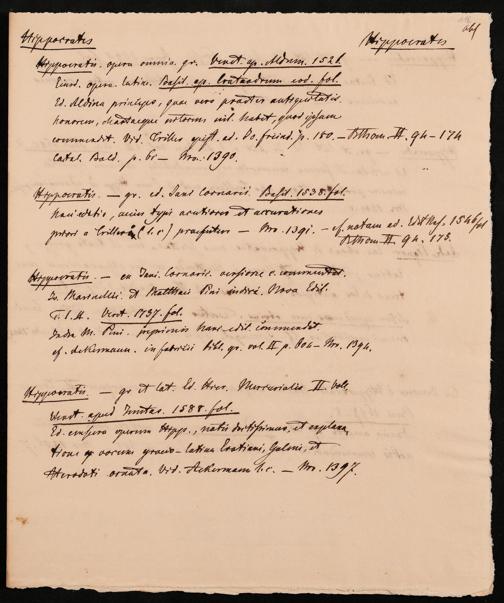 Hippocrates Hippocrates
Hippocratis opera omnia gr. Venet. ap. Aldum. 1526.
Eiusd. opera latine. Basil. ap. Cratandrum eod. fol.
Ed. Aldina princeps, quae vero praeter antiquitatis
honorem, nil habet, quod ipsam
commendet. Vid. Trilleri epist. ad. Jo. freind. p. 180. — II. 94 - 174
Catal. p. 61 — Nro. 1390.
Hippocratis — gr. ed. Jani Cornarii. Basil. 1538. fol.
Haec editio, cuius typis acutiores et accuratiores
priori a Trillero (l. c.) — Nro. 1391. — cf. notam ad. 1546 fol
II. 94. 173.
Hippocratis — ex Jani. Cornarii. versione c. commentat.
Jo. Marinelli. et Matthaei Pini indice. Nova Edit.
T. I. II. Venet. 1737. fol.
Index M. Pini. inprimis hanc edit. commendat.
cf. Ackermann. in fabricii bibl. gr. vol. II p. 604 — Nro. 1394.
Hippocratis — gr et lat. Ed. Hier. Mercurialis II. Voll.
Venet. apud Juntas. 1588. fol.
Ed. opera Hipp., notis doctissimis, et explana
tione vocum graeco-latina Erotiani, Galeni, et
Herodoti ornata. Vid. Ackermann l. c. — Nro. 1397.